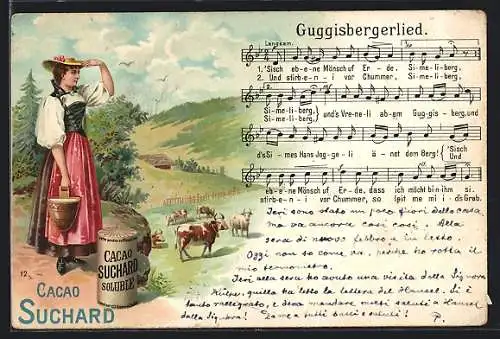 Guggisbergerlied.
Langsam.
1. 'Sisch eb=e=ne Mönsch uf Er - de, Si=me=li=berg.
2. Und stirb=e=n=i vor Chummer, Si=me=li=berg,
Si=me=li=berg, und's Vre=ne=li ab=em Gug=gis=berg, und
Si=me=li=berg,
d's Si=mes Hans Jog=ge=li ä=net dem Berg! 'Sisch
Und
eb=e=ne Mönsch uf Er=de, dass ich möcht bi=n=ihm si.
stirb=e=n=i vor Chummer, so leit me mi i d's Grab.
Ieri sono stato un poco fuori della casa
ma va ancora così così. Della
sera di nuovo febbre a letto.
Oggi non so come va, perchè ho rotto il
mio termometro.
Ieri alla sera ho avuto una visita della Signora
quella ha letto la lettera del Hansel. Si è
tanto rallegrata, e deve mandare molti saluti a Hansel
dalla Signora! tutti baci e saluti!
P.
CACAO
SUCHARD
SOLUBLE
12
CACAO
SUCHARD